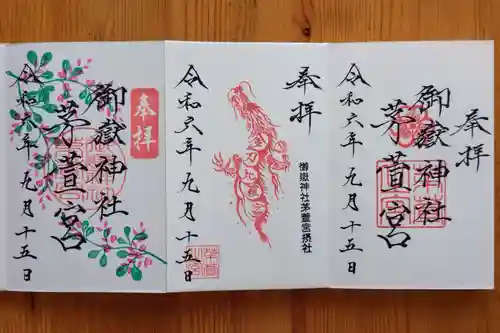 奉拝
御嶽神社
茅萱宮
令和六年九月十五日
奉拝
御嶽神社茅萱宮摂社
令和六年九月十五日
奉拝
御嶽神社
茅萱宮
令和六年九月十五日